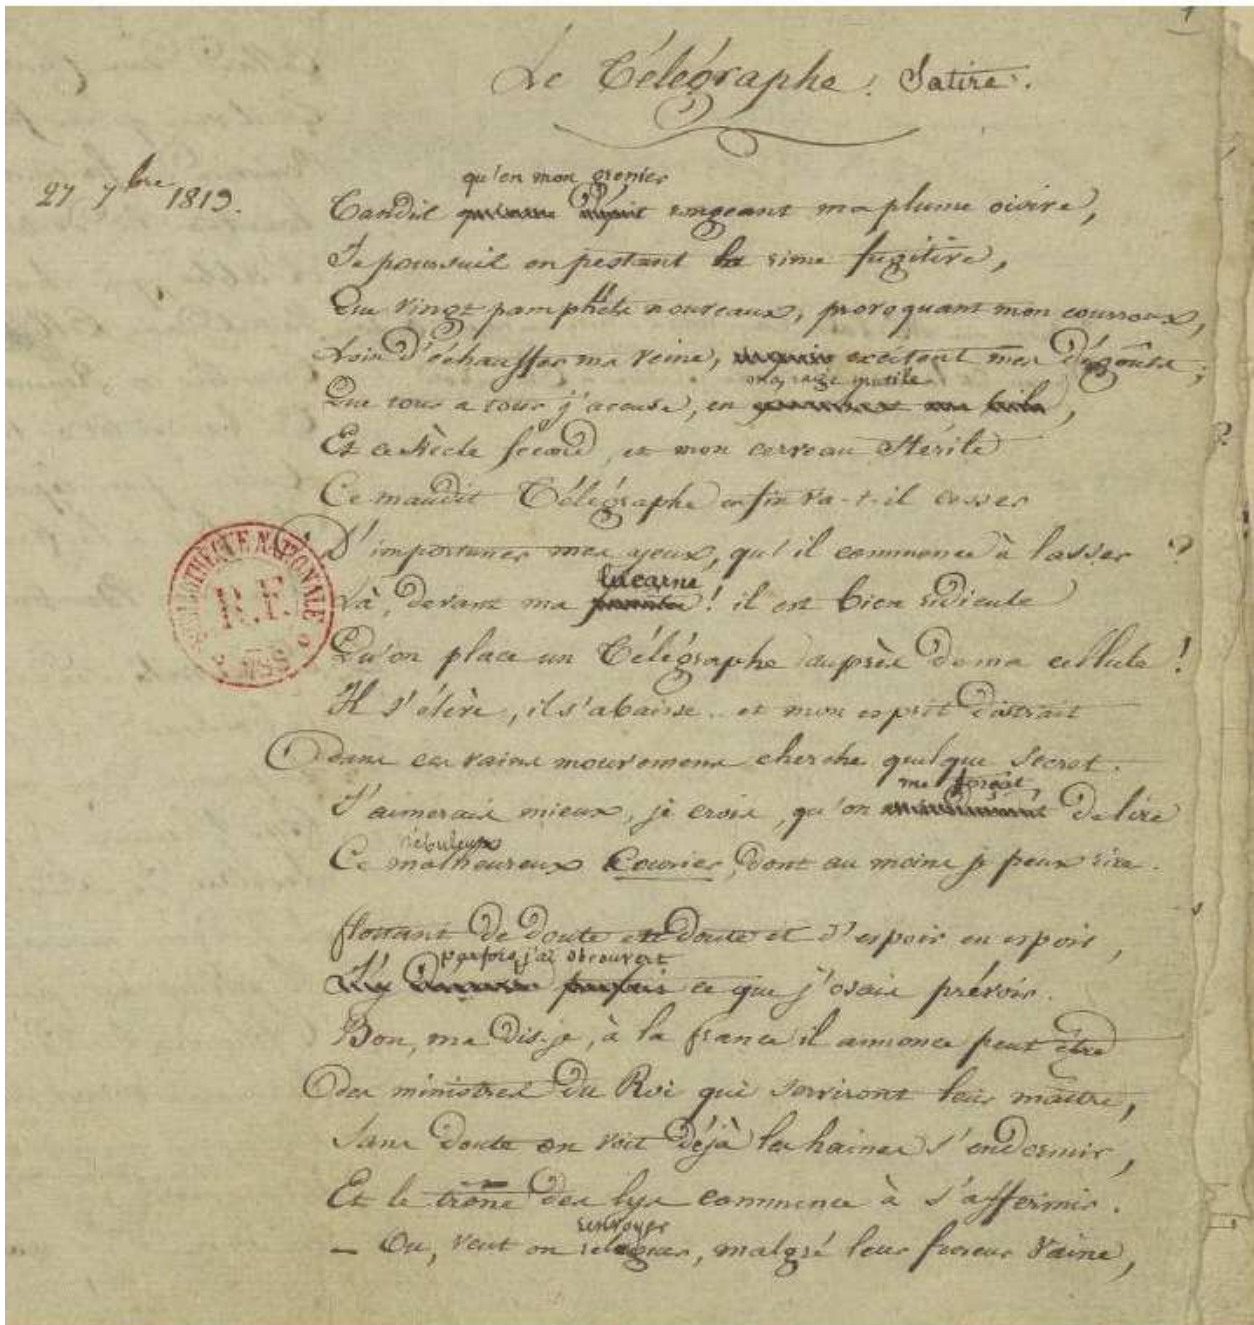 1
Le Télégraphe. Satire.
27 7bre 1819.
qu'en mon grenier
Tandis rongeant ma plume oisive,
Je poursuis en pestant la rime fugitive,
Que vingt pamphlets nouveaux, provoquant mon courroux,
Loin d'échauffer ma veine, excitent mes dégoûts,
ma rage inutile
Que tour a tour j'accuse, en
Et ce siècle fécond, et mon cerveau stérile
Ce maudit Télégraphe enfin va-t-il cesser
D'importuner mes yeux, qu'il commence à lasser ?
lucarne
Là, devant ma ! il est bien ridicule
BIBLIOTHEQUE NATIONALE
R.F.
MSS
Qu'on place un Télégraphe auprès de ma cellule !
Il s'élève, il s'abaisse.. et mon esprit distrait
Dans ces vains mouvemens cherche quelque secret.
me forçât,
J'aimerais mieux, je crois, qu'on de lire
nébuleux
Ce malheureux Courier, dont au moins je peux rire.
flottant de doute en doute et d'espoir en espoir,
parfois, j'ai découvert
J'y parfois ce que j'osais prévoir.
Bon, me dis-je, à la france il annonce peut être
Des ministres du Roi qui serviront leur maître,
Sans doute on voit déjà les haines s'endormir,
Et le trône des lys commence à s'affermir.
renvoyer
– Ou, veut on releguer, malgré leur fureur vaine,